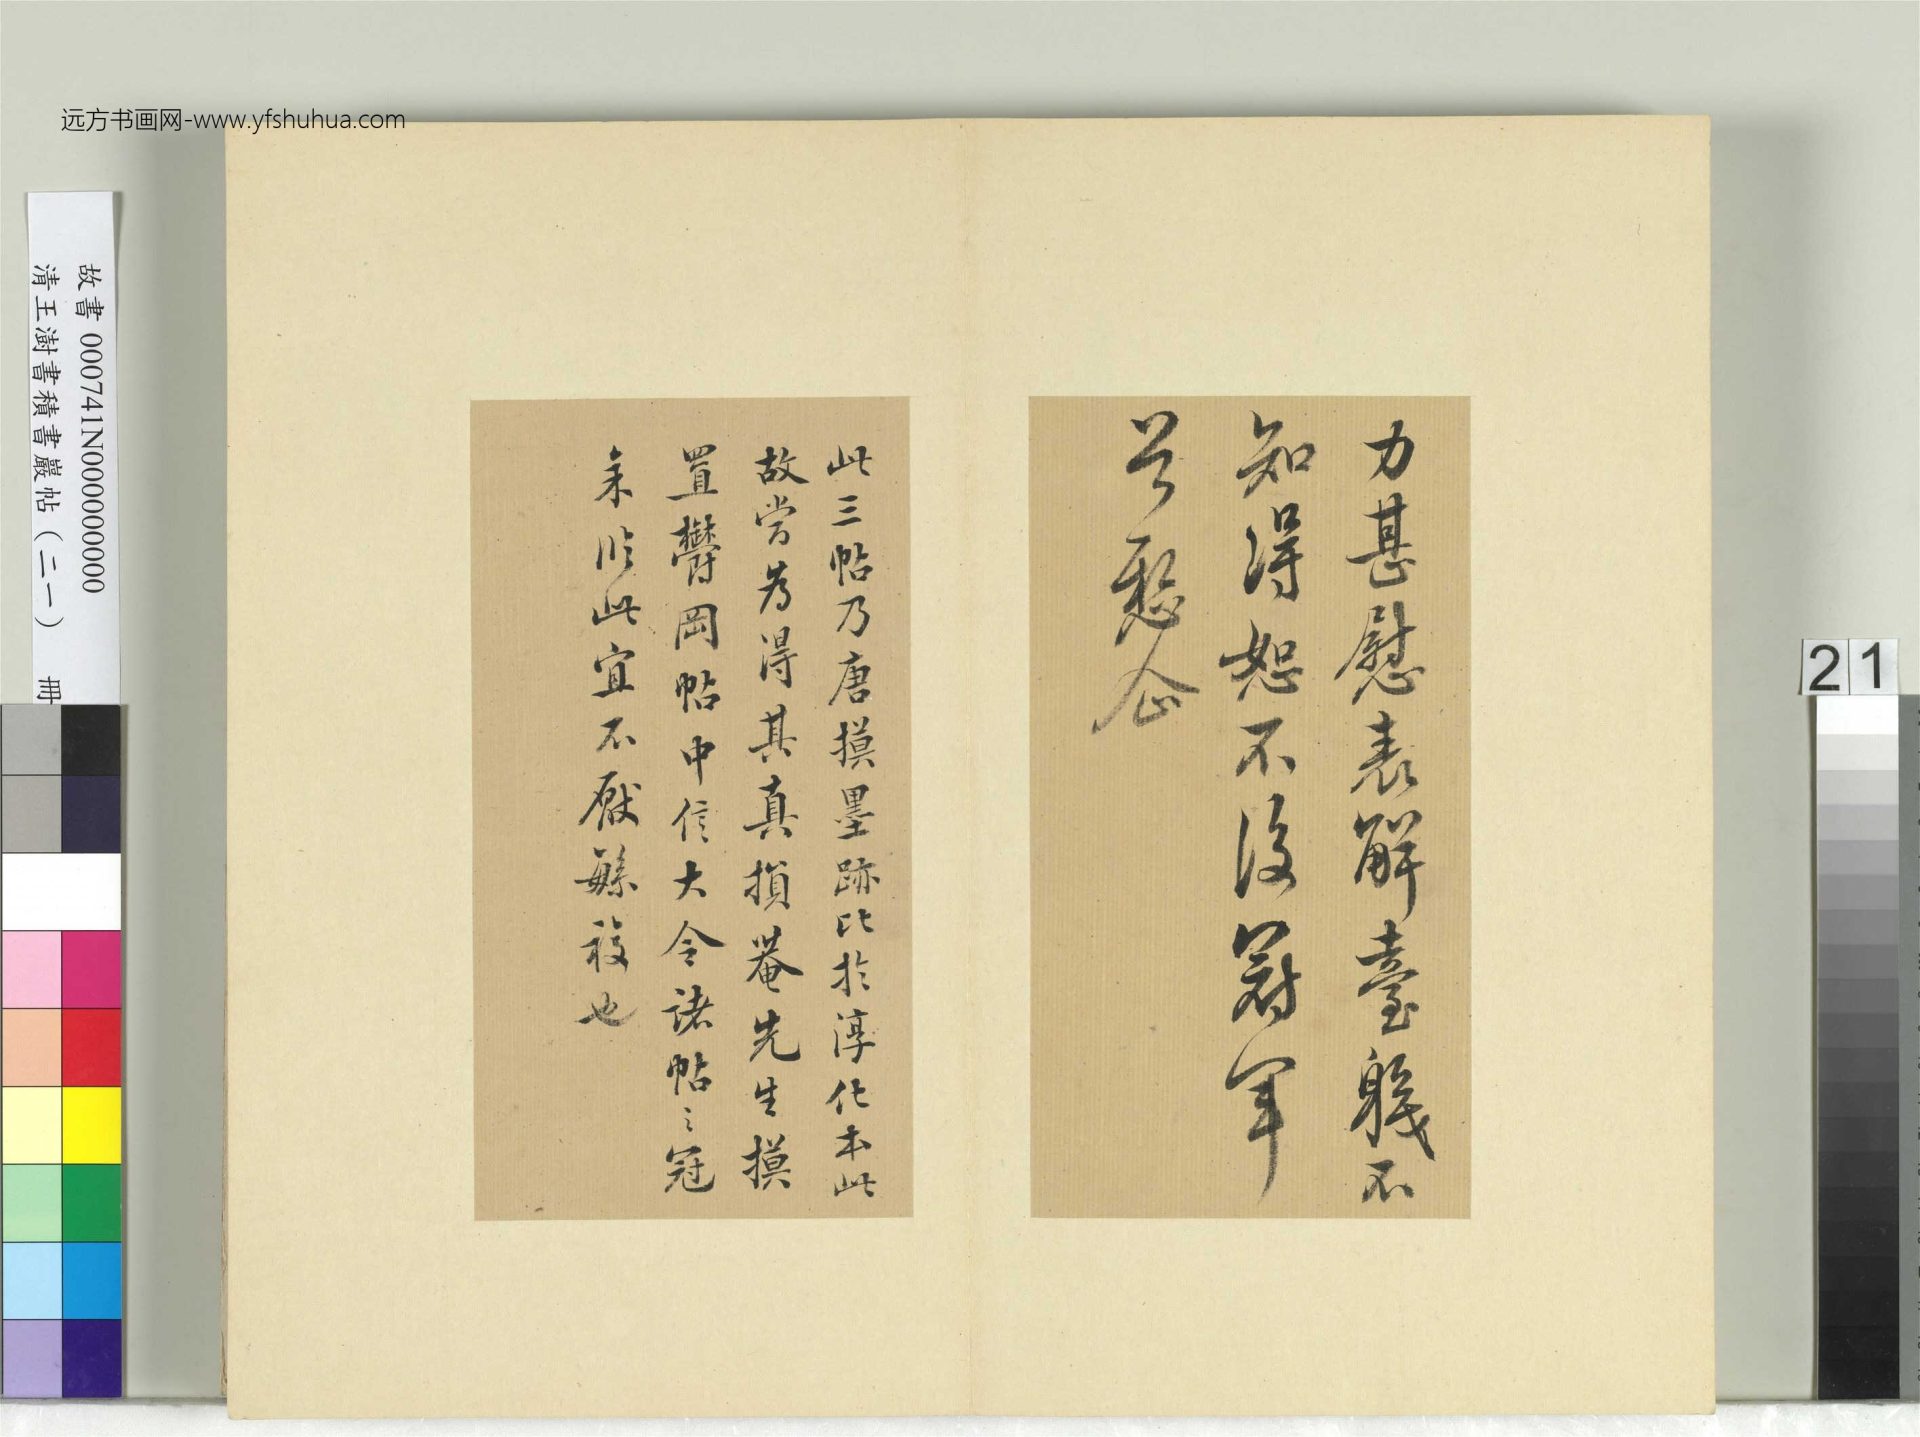 远方书画网-www.yfshuhua.com
故書 000741N000000000
清王澍書積書巖帖(二一) 冊
21
力甚慰表解臺躬不
知得恕不後冠軍
愁企
此三帖乃唐摸墨跡比於淳化本此
故当为得其真損菴先生摸
置欝岡帖中信大令諸帖〻冠
余臨此宜不厭繇複也